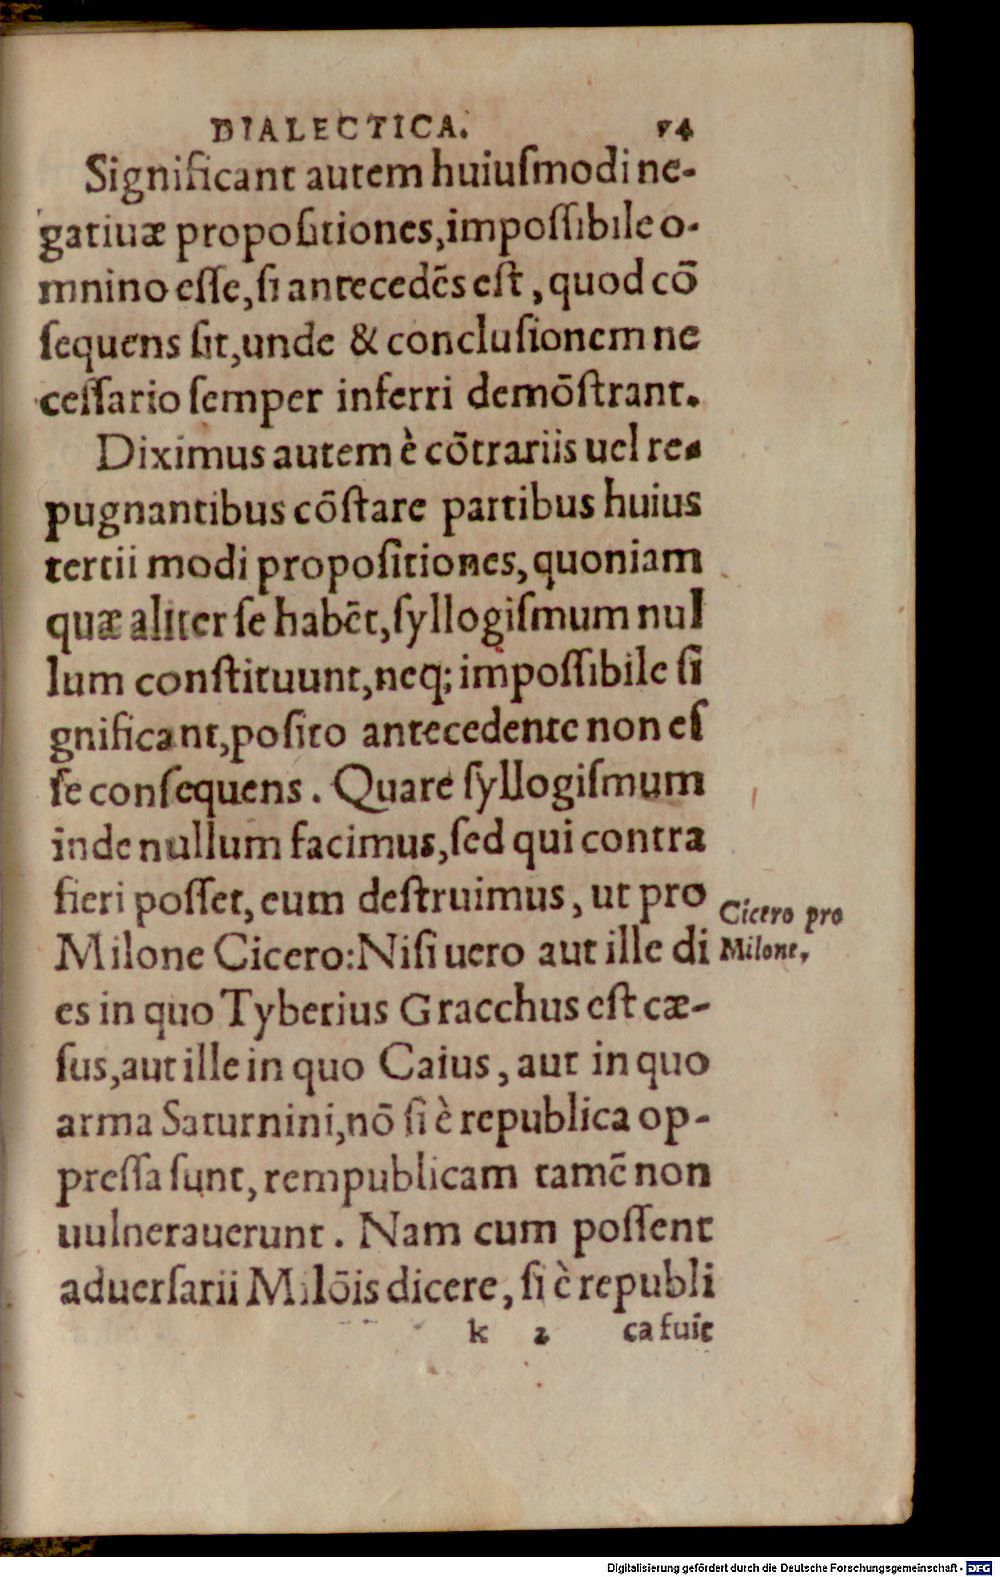 DIALECTICA. 74
Significant autem huiuſmodi ne-
gatiuæ propoſitiones, impoſſibile o-
mnino eſſe, ſi antecedẽs eſt, quod cõ
ſequens ſit, unde & concluſionem ne
ceſſario ſemper inferri demõſtrant.
Diximus autem è cõtrariis uel re-
pugnantibus cõſtare partibus huius
tertii modi propoſitiones, quoniam
quæ aliter ſe habẽt, ſyllogiſmum nul
lum conſtituunt, neq; impoſſibile ſi
gnificant, poſito antecedente non eſ
ſe conſequens. Quare ſyllogiſmum
inde nullum facimus, ſed qui contra
fieri poſſet, eum deſtruimus, ut pro
Milone Cicero: Niſi uero aut ille di
es in quo Tyberius Gracchus eſt cæ-
ſus, aut ille in quo Caius, aut in quo
arma Saturnini, nõ ſi è republica op-
preſſa ſunt, rempublicam tamẽ non
uulnerauerunt. Nam cum poſſent
aduerſarii Milõis dicere, ſi è republi
k 2 ca fuit
Cicero pro
Milone.
Digitalisierung gefördert durch die Deutsche Forschungsgemeinschaft - DFG